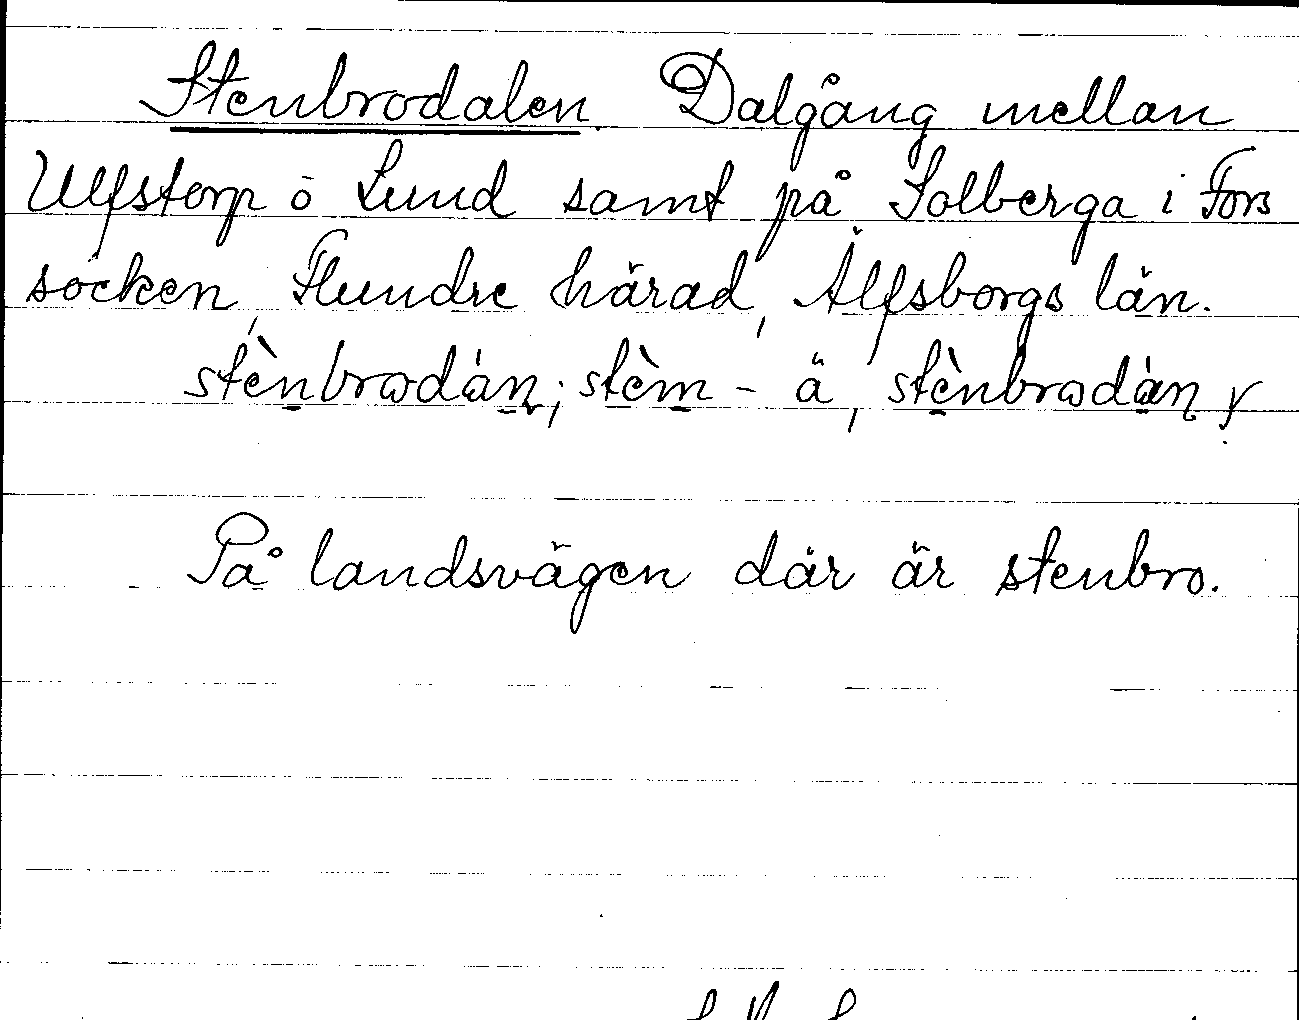 Stenbrodalen. Dalgång mellan
Ulfstorp o Lund samt på Solberga i Fors
socken, Flundre härad, Älfsborgs län.
stènbrωdán; stèm - ä, stènbrωdàn
På landsvägen där är stenbro.